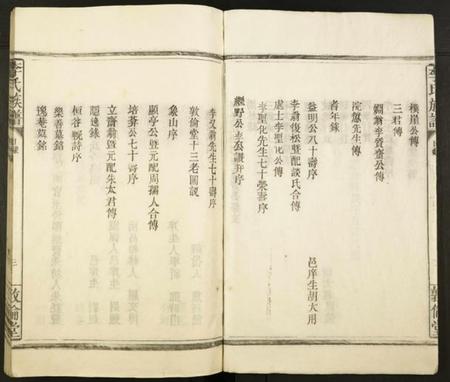 李氏族譜
樸崖公傳
三君傳
嫻翁李賛齋公傳
浣愈先生傳
耆年錄
益明公八十壽序 邑庠生胡大用
李翁復松暨配談氏合傳
處士李聖化公傳
李聖化先生七十榮壽序
繼野公
敦倫堂
李氏族譜
李先生七十壽序
敦倫堂十三老圖說
象山序
顯亭公暨元配周孺人合傳
培葊公七十壽序
立齋翁暨元配朱太君傳
隱逸錄
桓谷詩序
樂善墓銘
瑰菴墓銘
敦倫堂